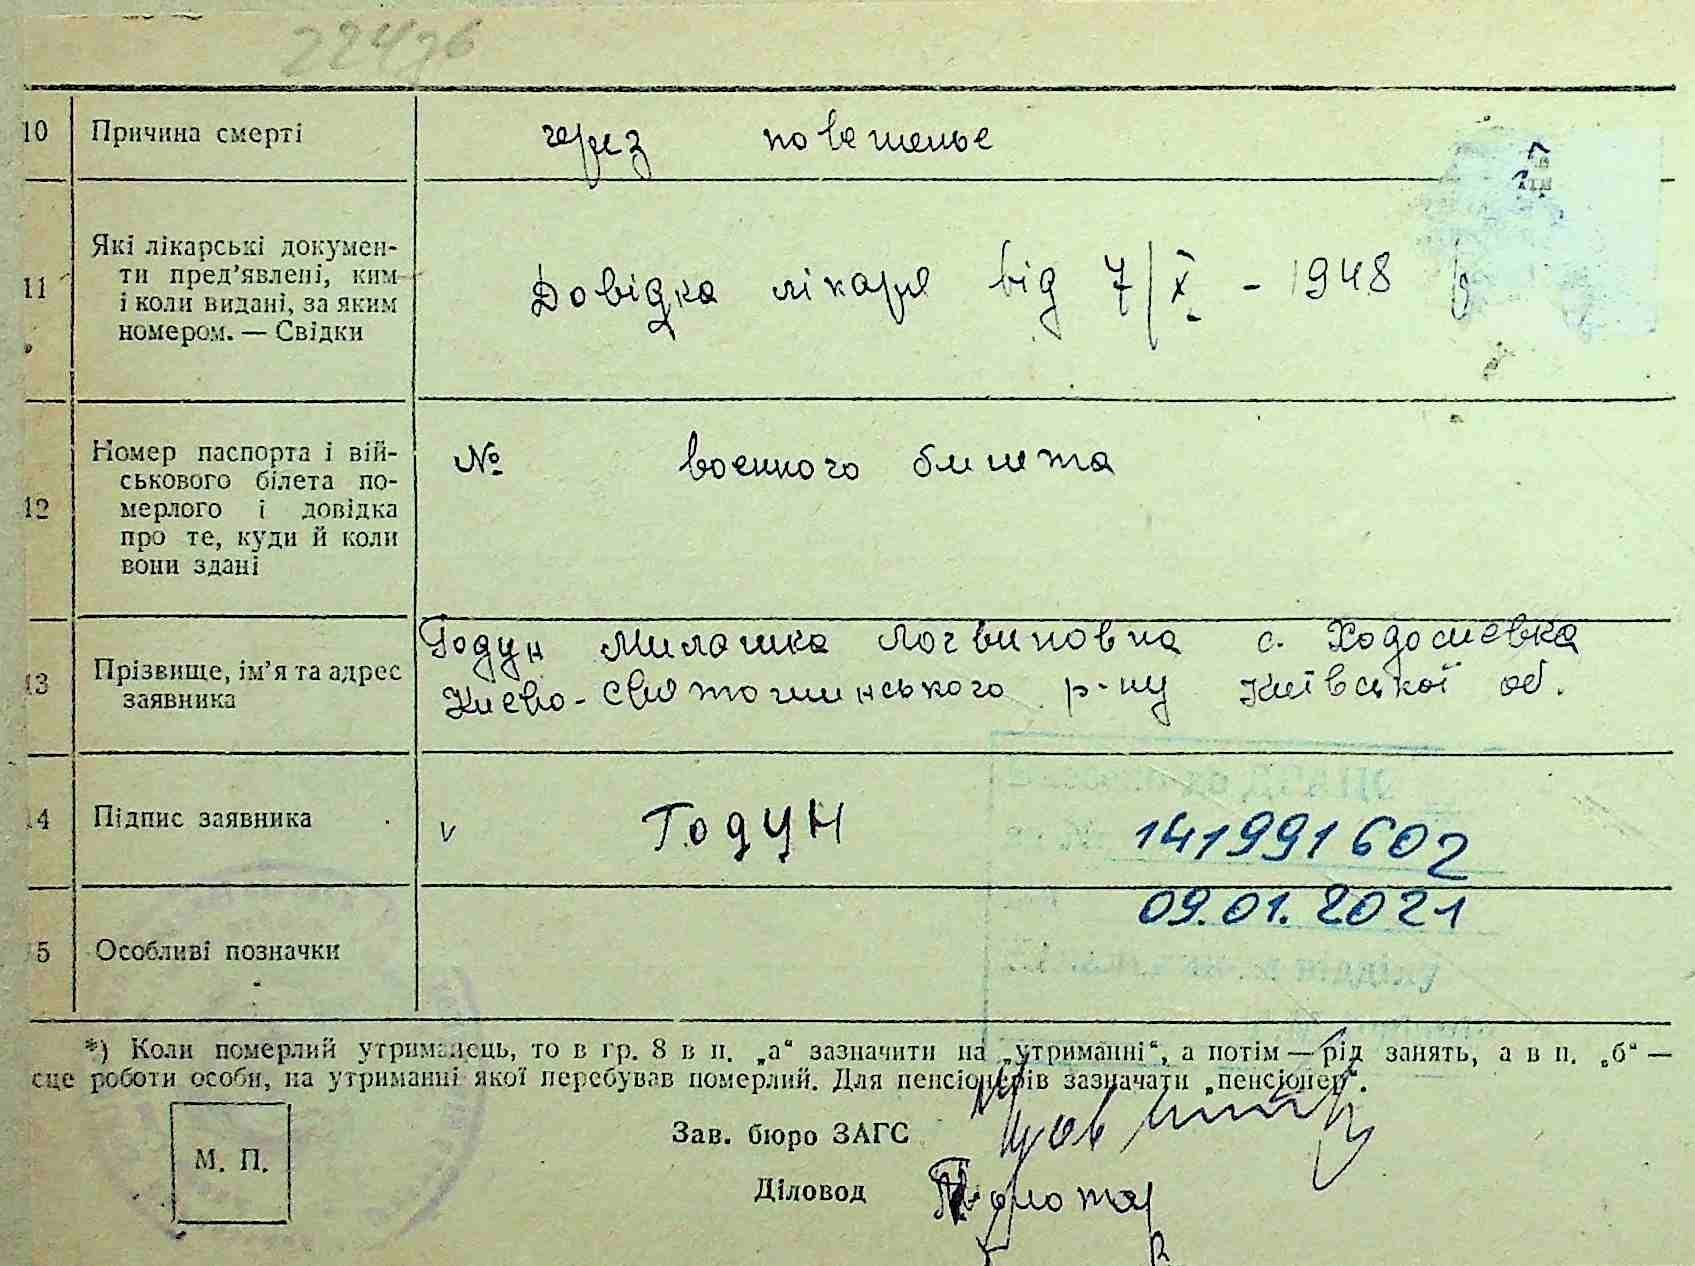 10 Причина смерті через повешенье
11 Які лікарські докумен-
ти пред’явлені, ким
і коли видані, за яким
номером. — Свідки
Довідка лікаря від 7/X - 1948 р
12 Номер паспорта і вій-
ськового білета по-
мерлого і довідка
про те, куди й коли
вони здані
№ военного билета
13 Прізвище, ім’я та адрес
заявника
Годун Милашка Логвиновна с. Ходосиевка
Києво-Святошинського р-ну Київської об.
14 Підпис заявника v Годун
141991602
09.01.2021
5 Особливі позначки
*) Коли померлий утриманець, то в гр. 8 в п. „а“ зазначити на „утриманні“, а потім — рід занять, а в п. „б“ —
сце роботи особи, на утриманні якої перебував померлий. Для пенсіонерів зазначати „пенсіонер“.
М. П.
Зав. бюро ЗАГС
Діловод